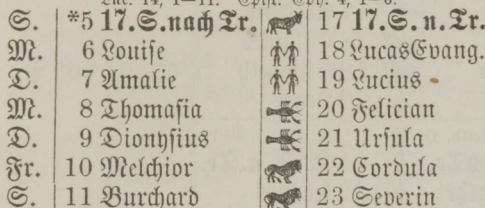 Luc. 14, 1—11. Epist. Eph. 4, 1—6.
S. *5 17. S. nach Tr. 17 17. S. n. Tr.
M. 6 Louise 18 Lucas Evang.
D. 7 Amalie 19 Lucius
M. 8 Thomasia 20 Felician
D. 9 Dionysius 21 Ursula
Fr. 10 Melchior 22 Cordula
S. 11 Burchard 23 Severin